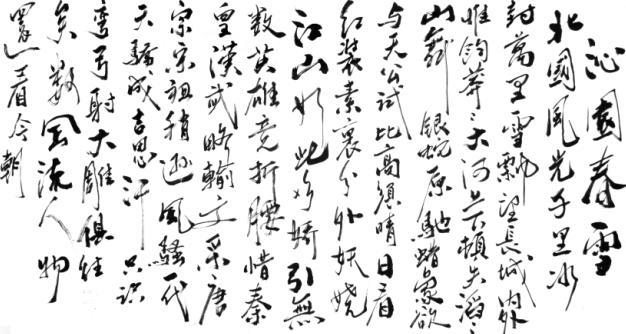 沁園春雪
北國風光千里冰
封萬里雪飄望長城内外
惟餘莽〻大河上下頓失滔〻
山舞 銀蛇原馳蠟象欲
与天公試比高須晴日看
紅裝素裹分外妖嬈
江山如此多嬌引無
數英雄竞折腰惜秦
皇漢武略輸文采唐
宗宋祖稍遜風騷一代
天驕成吉思汗只识
彎弓射大雕俱往
矣數風流人物
還看今朝